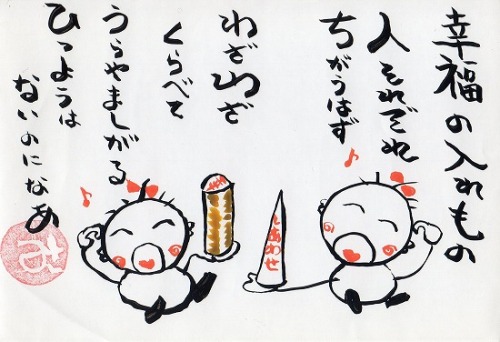 幸福の入れもの
人それぞれ
ちがうはず
わざわざ
くらべて
うらやましがる
ひつようは
ないのになあ
しあわせ